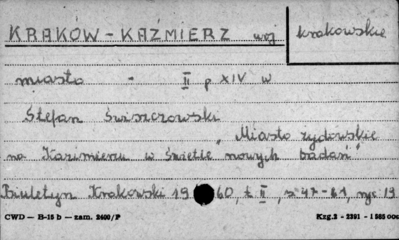 KRAKÓW - KAŹMIERZ woj krakowskie
miasto - II p XIV w
Stefan Świszczowski
"Miasto żydowskie
na Kazimierzu w świetle nowych badań"
Biuletyn Krakowski 1960, t II, s. 47-61, ryc 19
CWD — B-15 b — zam. 2400/P Kzg.2 - 2391 - 1 505 000